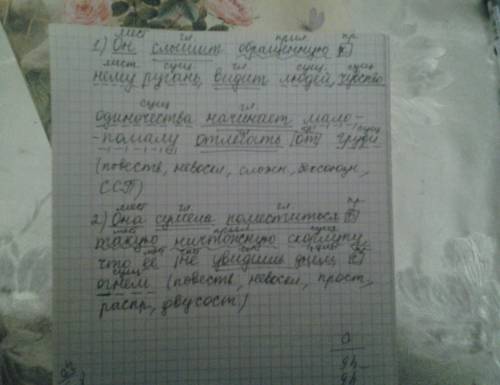 мест гл. прил пр.
1) Он слышит обращенную [к]
мест. сущ гл. сущ сущ
нему ругань, видит людей, чувство
сущ гл.
одиночества начинает мало-
-помалу отлегать [от] груди
(повеств, невоскл, сложн, бессоюзн,
ССП)
мест гл. гл. пр.
2) Она сумела поместиться [в]
такую ничтожную скорлупу
что её [не увидишь днём [с]
огнем (повеств, невоскл, прост,
распр, двусост)